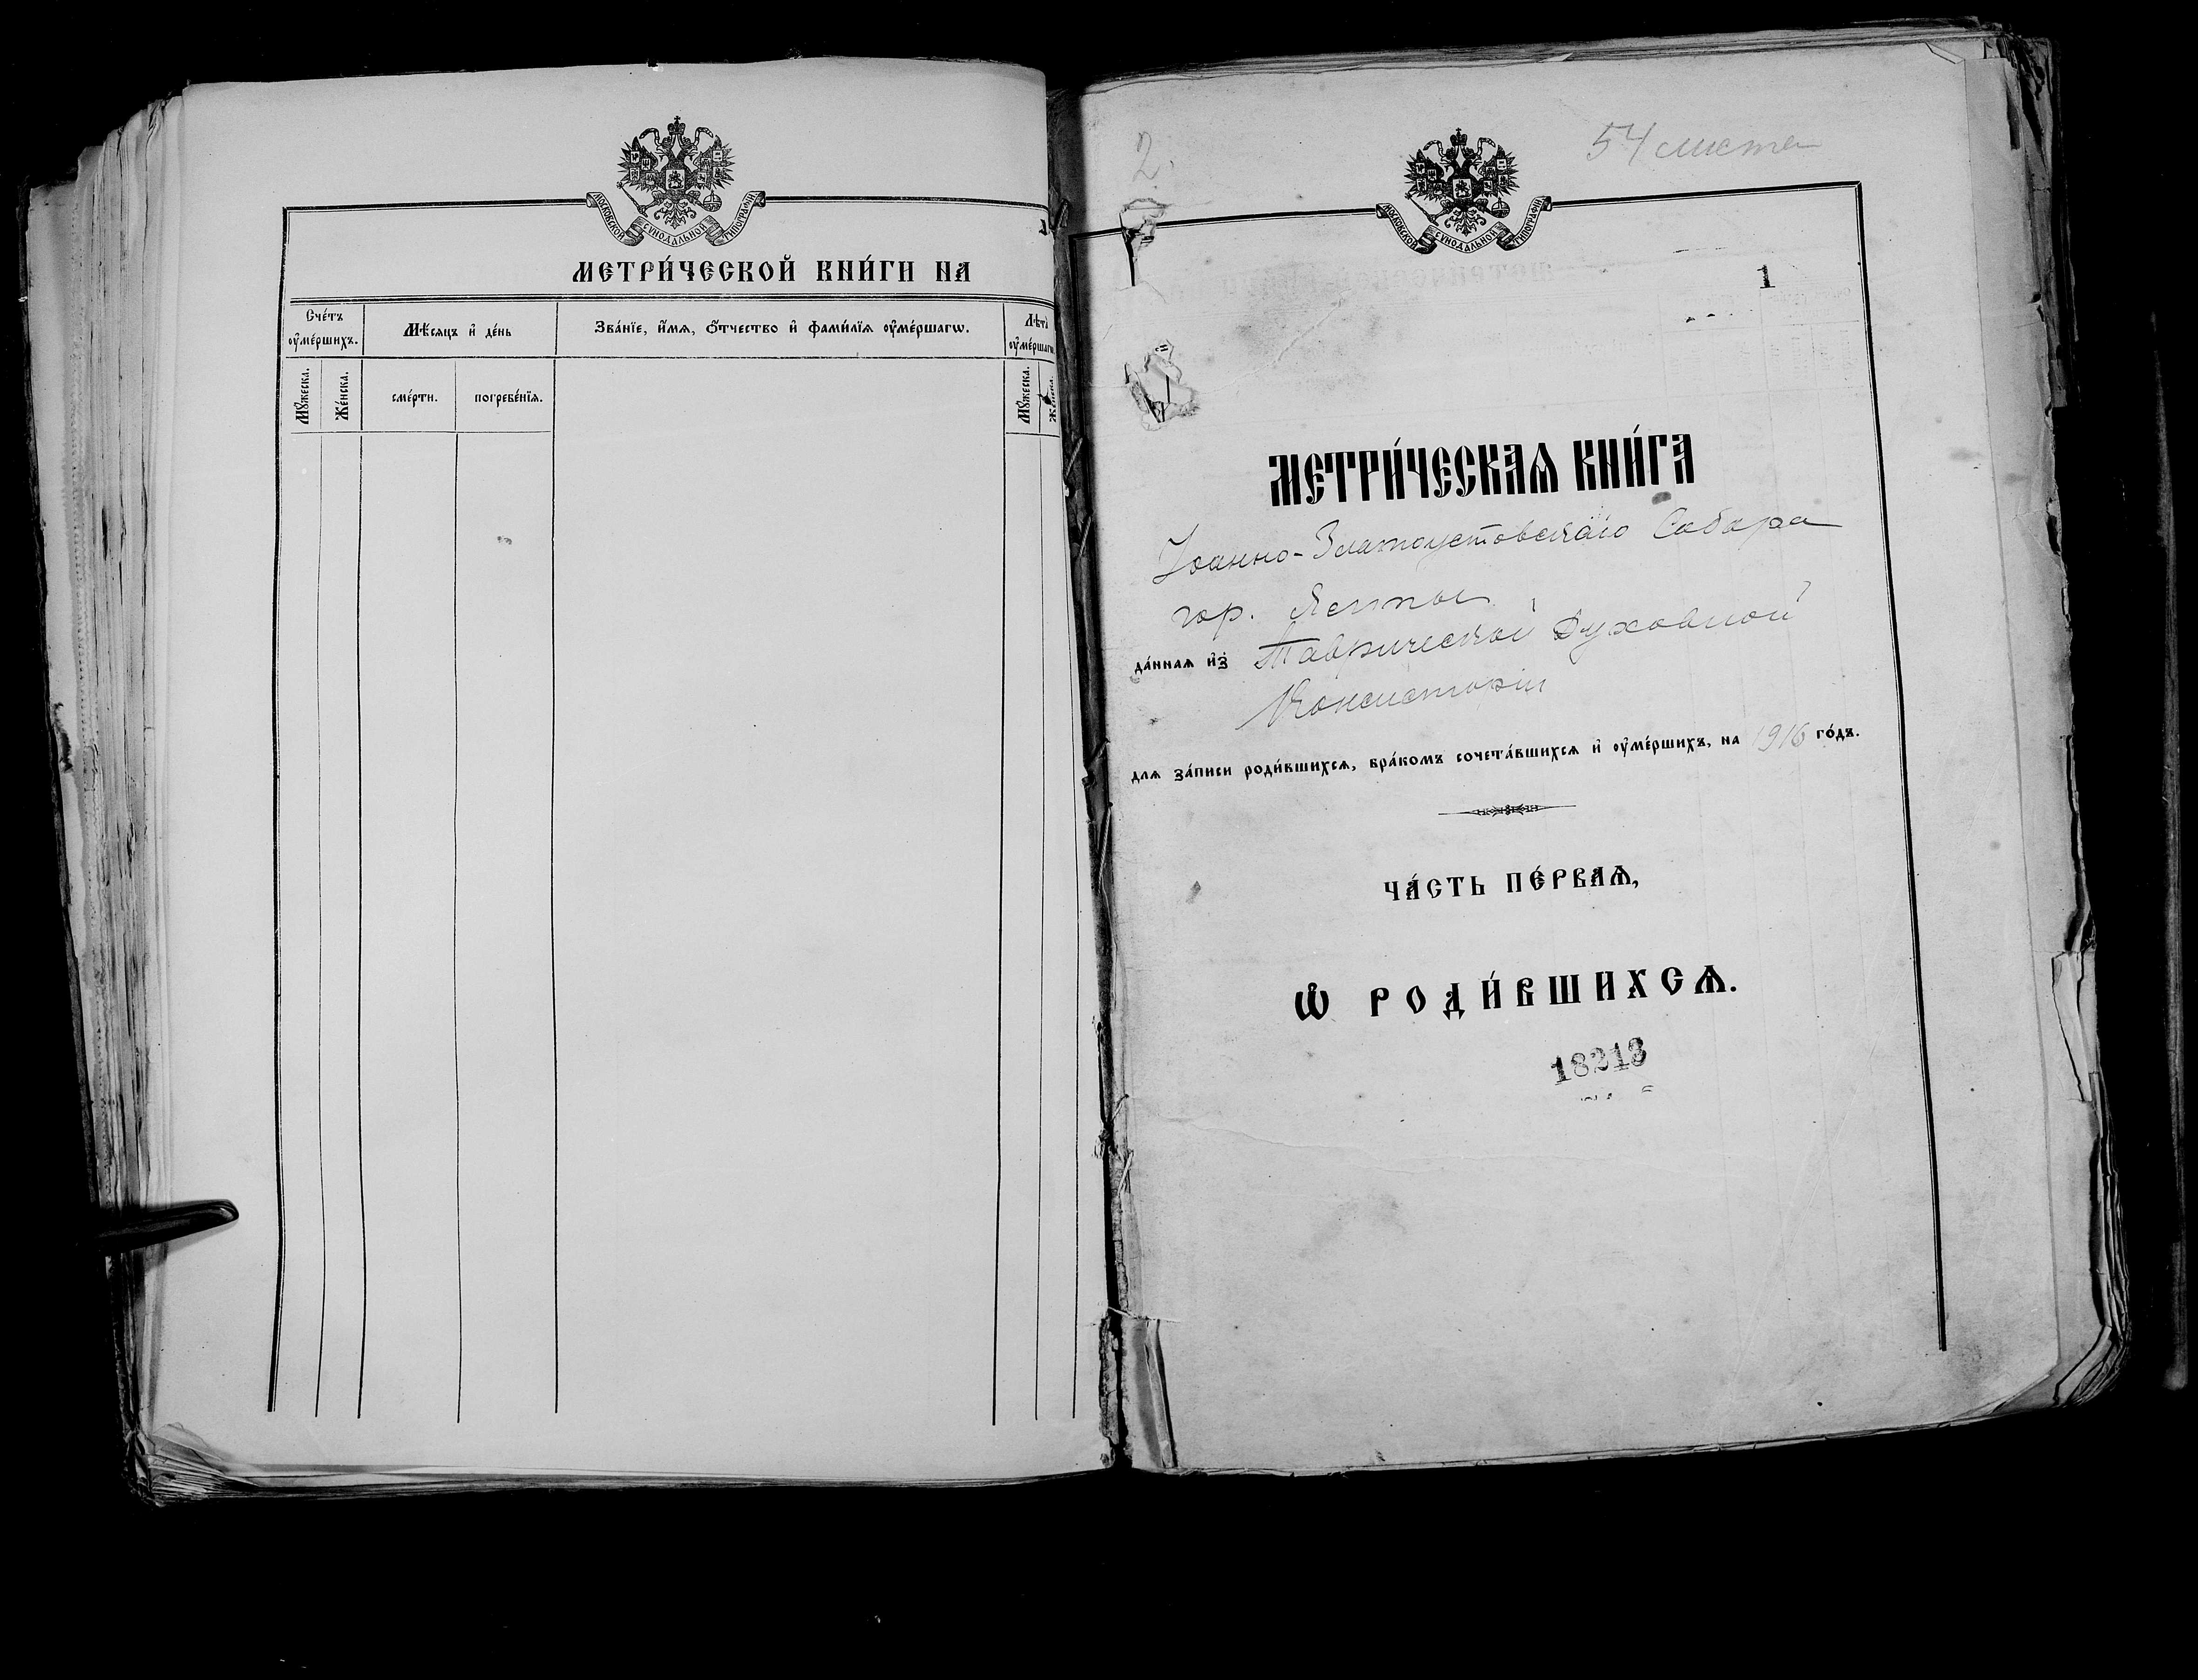 МОСКОВСКОЙ СѴНОДАЛЬНОЙ ТИПОГРАФІИ
МЕТРИ́ЧЕСКОЙ КНИ́ГИ НА
Сче́тъ ᲂу҆ме́ршихъ.
Мѣ́сяцъ и҆ де́нь
Зва́нїе, и҆́мѧ, ѻ҆́тчество и҆ фами́лїѧ ᲂу҆ме́ршагѡ.
Лѣта̀ ᲂу҆ме́ршагѡ.
Мꙋ́жеска.
Же́нска.
сме́рти.
погребе́нїѧ.
Мꙋ́жеска.
Же́нска.
2.
54 листа
МОСКОВСКОЙ СѴНОДАЛЬНОЙ ТИПОГРАФІИ
1
МЕТРИ́ЧЕСКАѦ КНИ́ГА
Іоанно-Златоустовскаго Собора
гор. Ялты
да́ннаѧ и҆з̾ Таврической Духовной
Консисторіи
длѧ за́писи роди́вшихсѧ, бра́комъ сочета́вшихсѧ и҆ ᲂу҆ме́ршихъ, на 1916 го́дъ.
ЧА́СТЬ ПЕ́РВАѦ,
Ѽ РОДИ́ВШИХСѦ.
18213